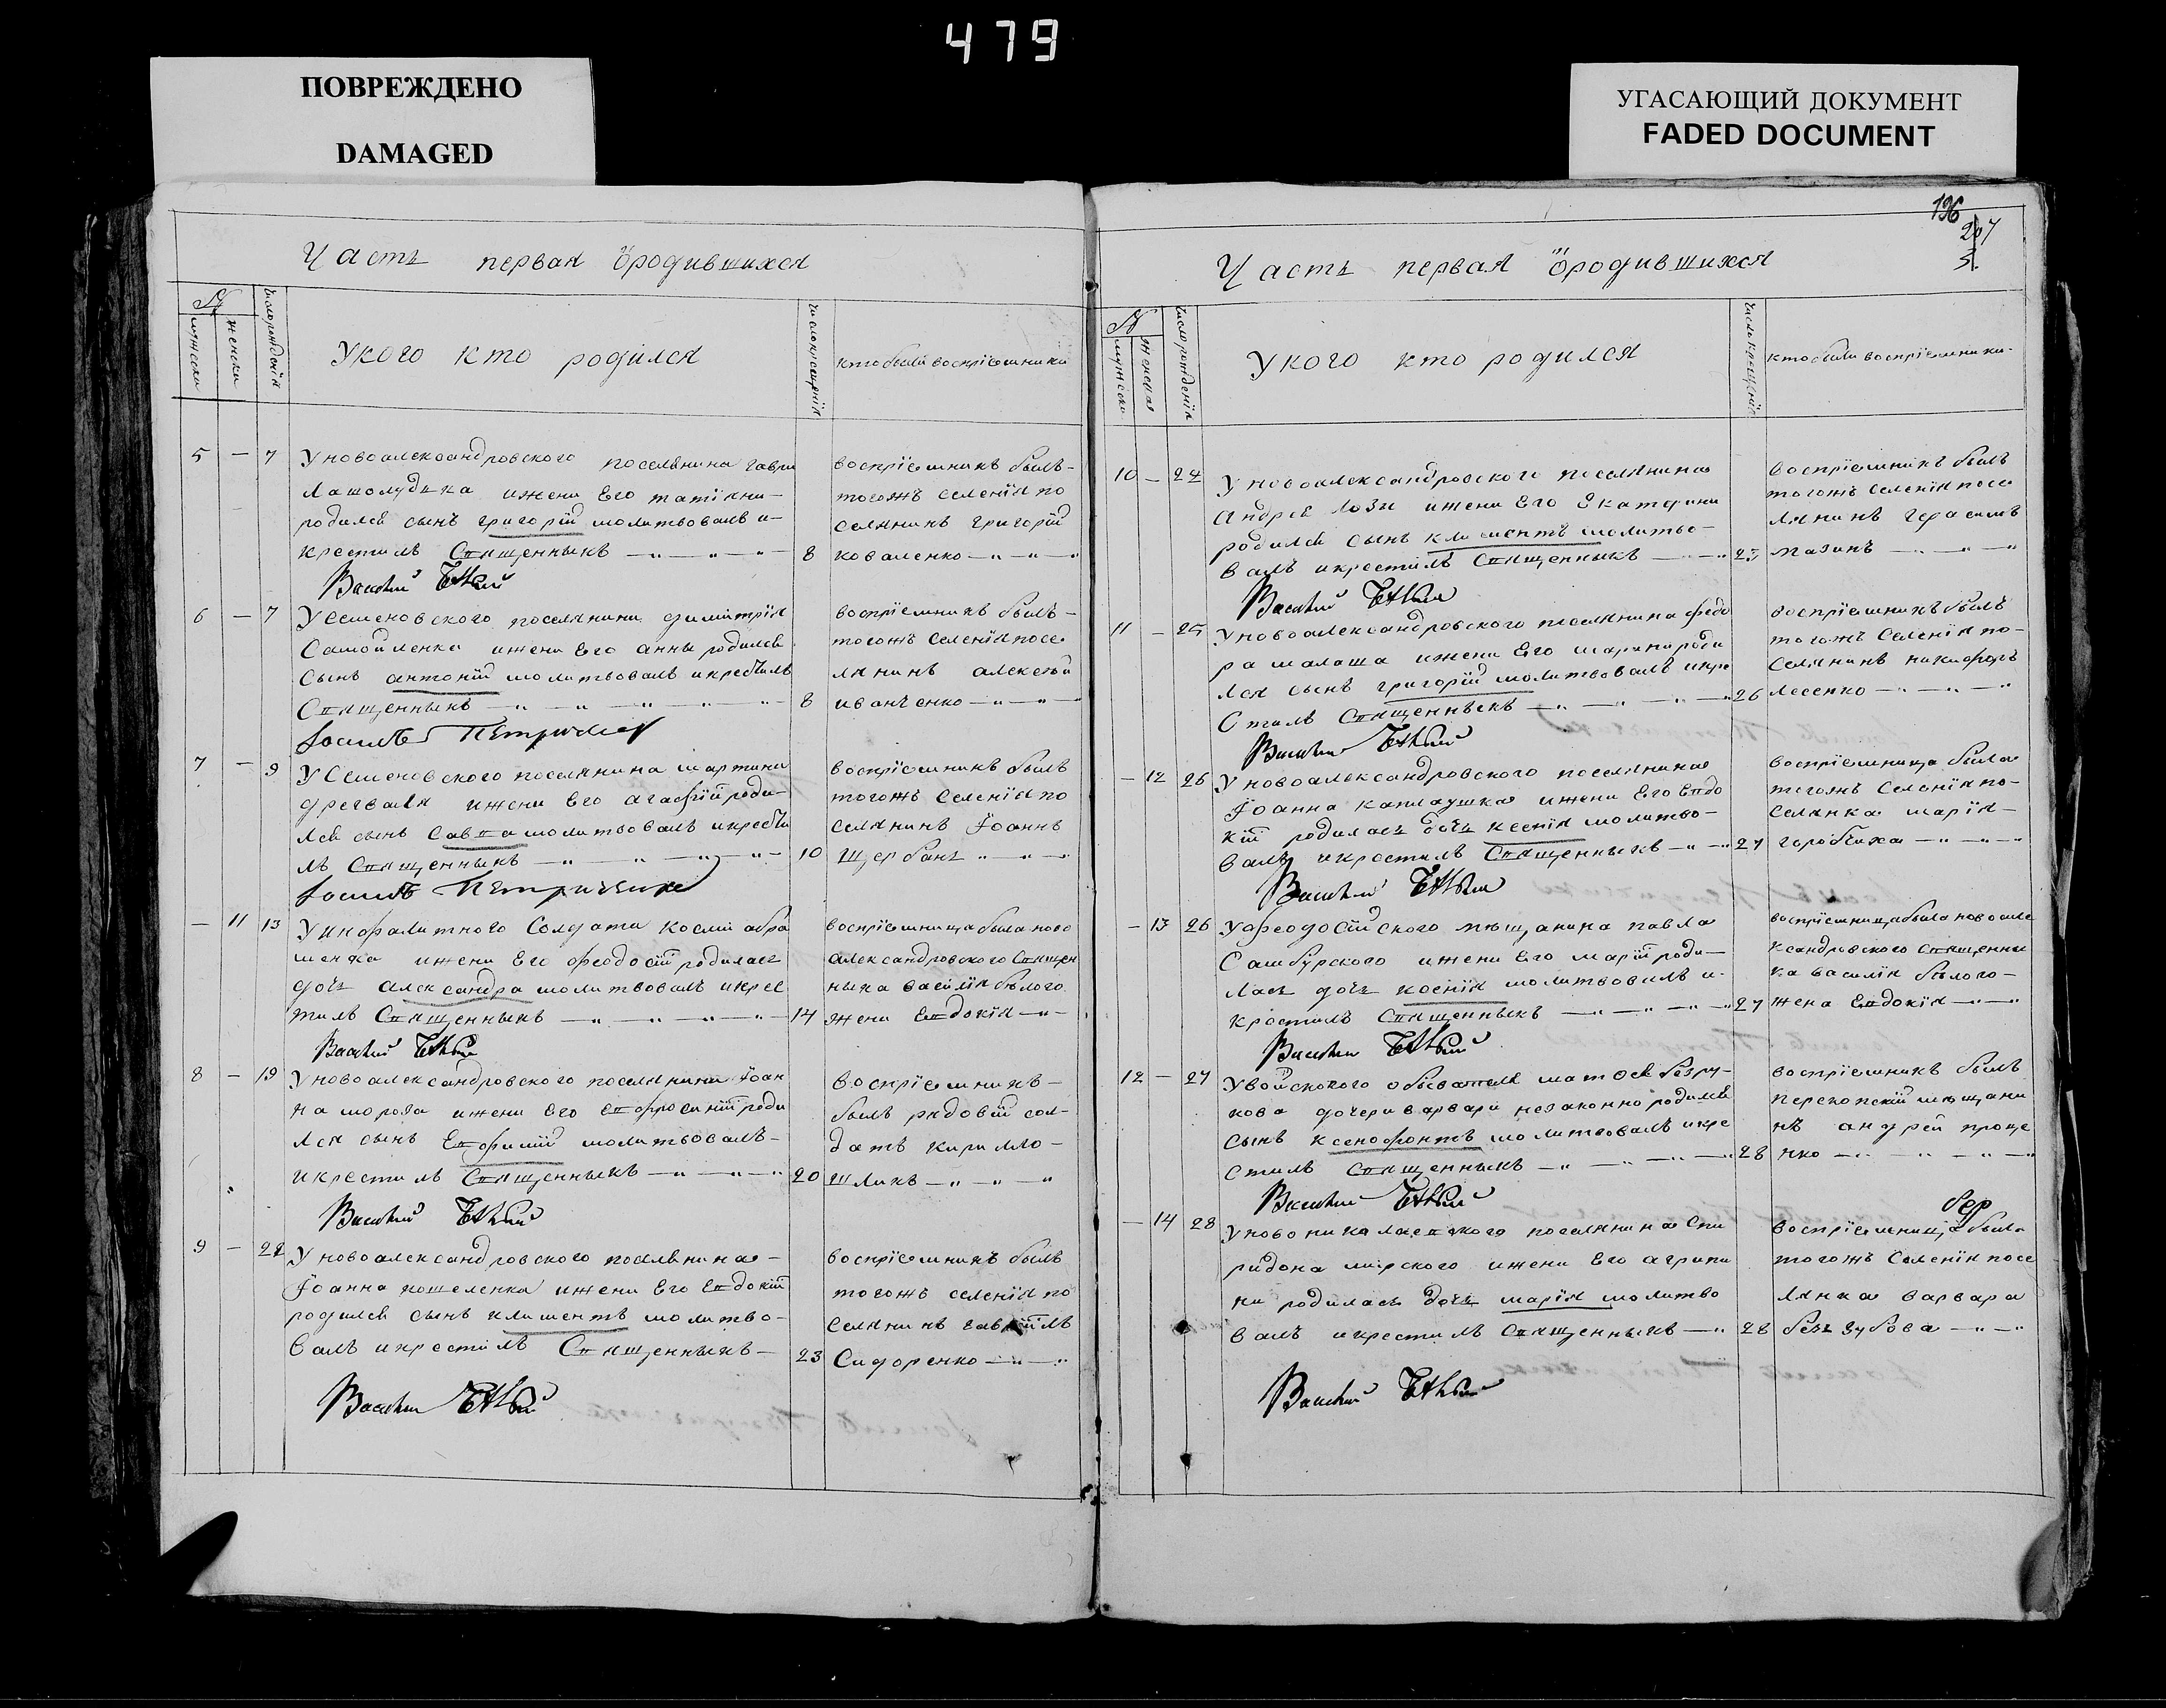 479
ПОВРЕЖДЕНО
DAMAGED
УГАСАЮЩИЙ ДОКУМЕНТ
FADED DOCUMENT
Часть первая ӧродившихся
№
мужеска
женска
число рожденія
Укого кто родился
число крещенія
кто были воспріємники
5 — 7 У новоалександровского поселянина гаври
ла шолудька ижени Его татіяни —
родился сынъ григорій молитвовалъ и —
крестилъ Священникъ — „ — „ — 8
Василий Бѣлый
воспріємникъ былъ —
тогожъ селенія по
селянинъ григорій
коваленко — „ — „
6 — 7 У Семеновского поселянина димитрія
Самойленка ижени Его анны родился
Сынъ антоній молитвовалъ икрестилъ
Священникъ — „ — „ — „ — „ — 8
Іосифъ Петриченко
воспріємникъ былъ —
тогожъ Селенія посе
лянинъ алексѣй
иванченко — „ — „ —
7 — 9 У Семеновского поселянина мартина
дрегваля ижени Его агафіи роди —
лся сынъ Савва молитвовалъ икрести
лъ Священникъ — „ — „ — „ — „ — 10
Іосифъ Петриченко
воспріємникъ былъ
тогожъ Селенія по
селянинъ Іоаннъ
Щербань „ — „ — „
— 11 13 У инфалитного Солдата косми абра
менка ижени Его феодосіи родилась
дочь александра молитвовалъ икрес
тилъ Священникъ — „ — „ — „ — „ — 14
Василий Бѣлый
воспріємница была ново
александровского Священ
ника василія бѣлого
жена Евдокія — „ —
8 — 19 У новоалександровского поселянина Іоан
на мороза ижени Его Евфросиніи роди
лся сынъ Евфимій молитвовалъ —
икрестилъ Священникъ — „ — „ — „ 20
Василий Бѣлый
воспріємникъ —
былъ рядовій сол —
датъ кирилло —
Шликъ — „ — „ — „
9 — 22 У новоалександровского поселянина —
Іоанна кошеленка ижени Его Евдокіи
родился сынъ климентъ молитво —
валъ икрестилъ Священникъ — 23
Василий Бѣлый
воспріємникъ былъ
тогожъ селенія по
селянинъ гавріилъ
Сидоренко — „ — „
196
207
Часть первая ӧродившихся
№
мужеска
женска
число рожденія
Укого кто родился
число крещенія
кто были воспріємники
10 — 24 У новоалександровского поселянина
Андрея Лози ижени Его Екатерини
родился сынъ климентъ молитво —
валъ икрестилъ Священникъ — „ 25
Василий Бѣлый
воспріємникъ былъ
тогожъ селенія посе
лянинъ герасимъ
мазинъ — „ — „ — „
11 — 25 У новоалександровского поселянина федо
ра малаша ижени Его марини роди
лся сынъ григорій молитвовалъ икре
Стилъ Священникъ — „ — „ — „ 26
Василий Бѣлый
воспріємникъ былъ
тогожъ Селенія по —
Селянинъ никифоръ
лесенко — „ — „ — „
— 12 26 У новоалександровского поселянина
Іоанна каплаушка ижени Его Евдо
кіи родилась дочь ксенія молитво —
валъ икрестилъ Священникъ — „ — „ 27
Василий Бѣлый
воспріємница была
тогожъ Селенія по —
Селянка марія —
горобчиха — „ — „ — „
— 13 26 У феодосійского мѣщанина павла
Самбурского ижени Его маріи роди —
лась дочь ксенія молитвовалъ и —
крестилъ Священникъ — „ — „ — „ 27
Василий Бѣлый
воспріємница была новоале
ксандровского Священни
ка василія бѣлого —
жена Евдокія — „ — „
12 — 27 У войского обивателя матвея безру —
кова дочери варвари незаконно родился
Сынъ ксенофонтъ молитвовалъ икре
Стилъ Священникъ — „ — „ — „ 28
Василий Бѣлый
воспріємникъ былъ
перекопскій мѣщани
нъ андрей проце
нко — „ — „ — „
— 14 28 У новониколаевского поселянина Спи
ридона мирского ижени Его агрипи
ни родилась дочь марія молитво
валъ икрестилъ Священникъ — „ 28
Василий Бѣлый
воспріємница была
тогожъ Селенія посе
лянка варвара
беззубова — „ — „